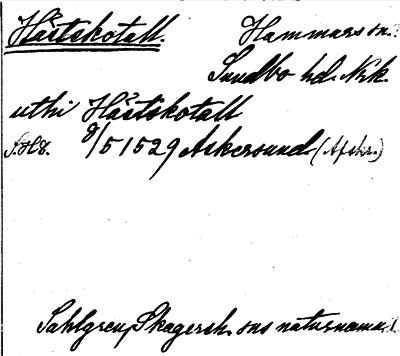 Håstskotall. Hammars sn.
Sundbo hd. Nrk.
uthi Håstskotall
8/5 1529 Askersund (Afskr.)
Sahlgren, Skagersh. sns naturnamn